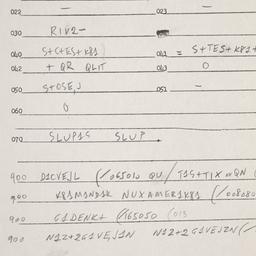 022 — 023 —
030 RIV2-
040 S+C+ES+K81 041 = S+TES+K81+
042 + QR QLIT 043 0
050 S+OSE,J 051 —
060 0
070 SLUP1S SLUP
900 D1CVEJL (/065010 QU/ T1S+TIX
900 K81M0ND1K NUXAMER1K81 (/008080
900 G1DENK+ (/165050 (013
900 N12+2G1VEJ1N N12+2G1VEJ2N (/